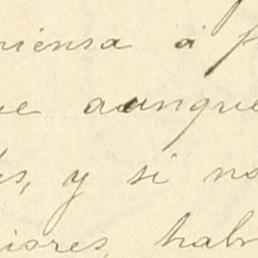 piensa á p
ue aunque
s, y si no
iores, hab